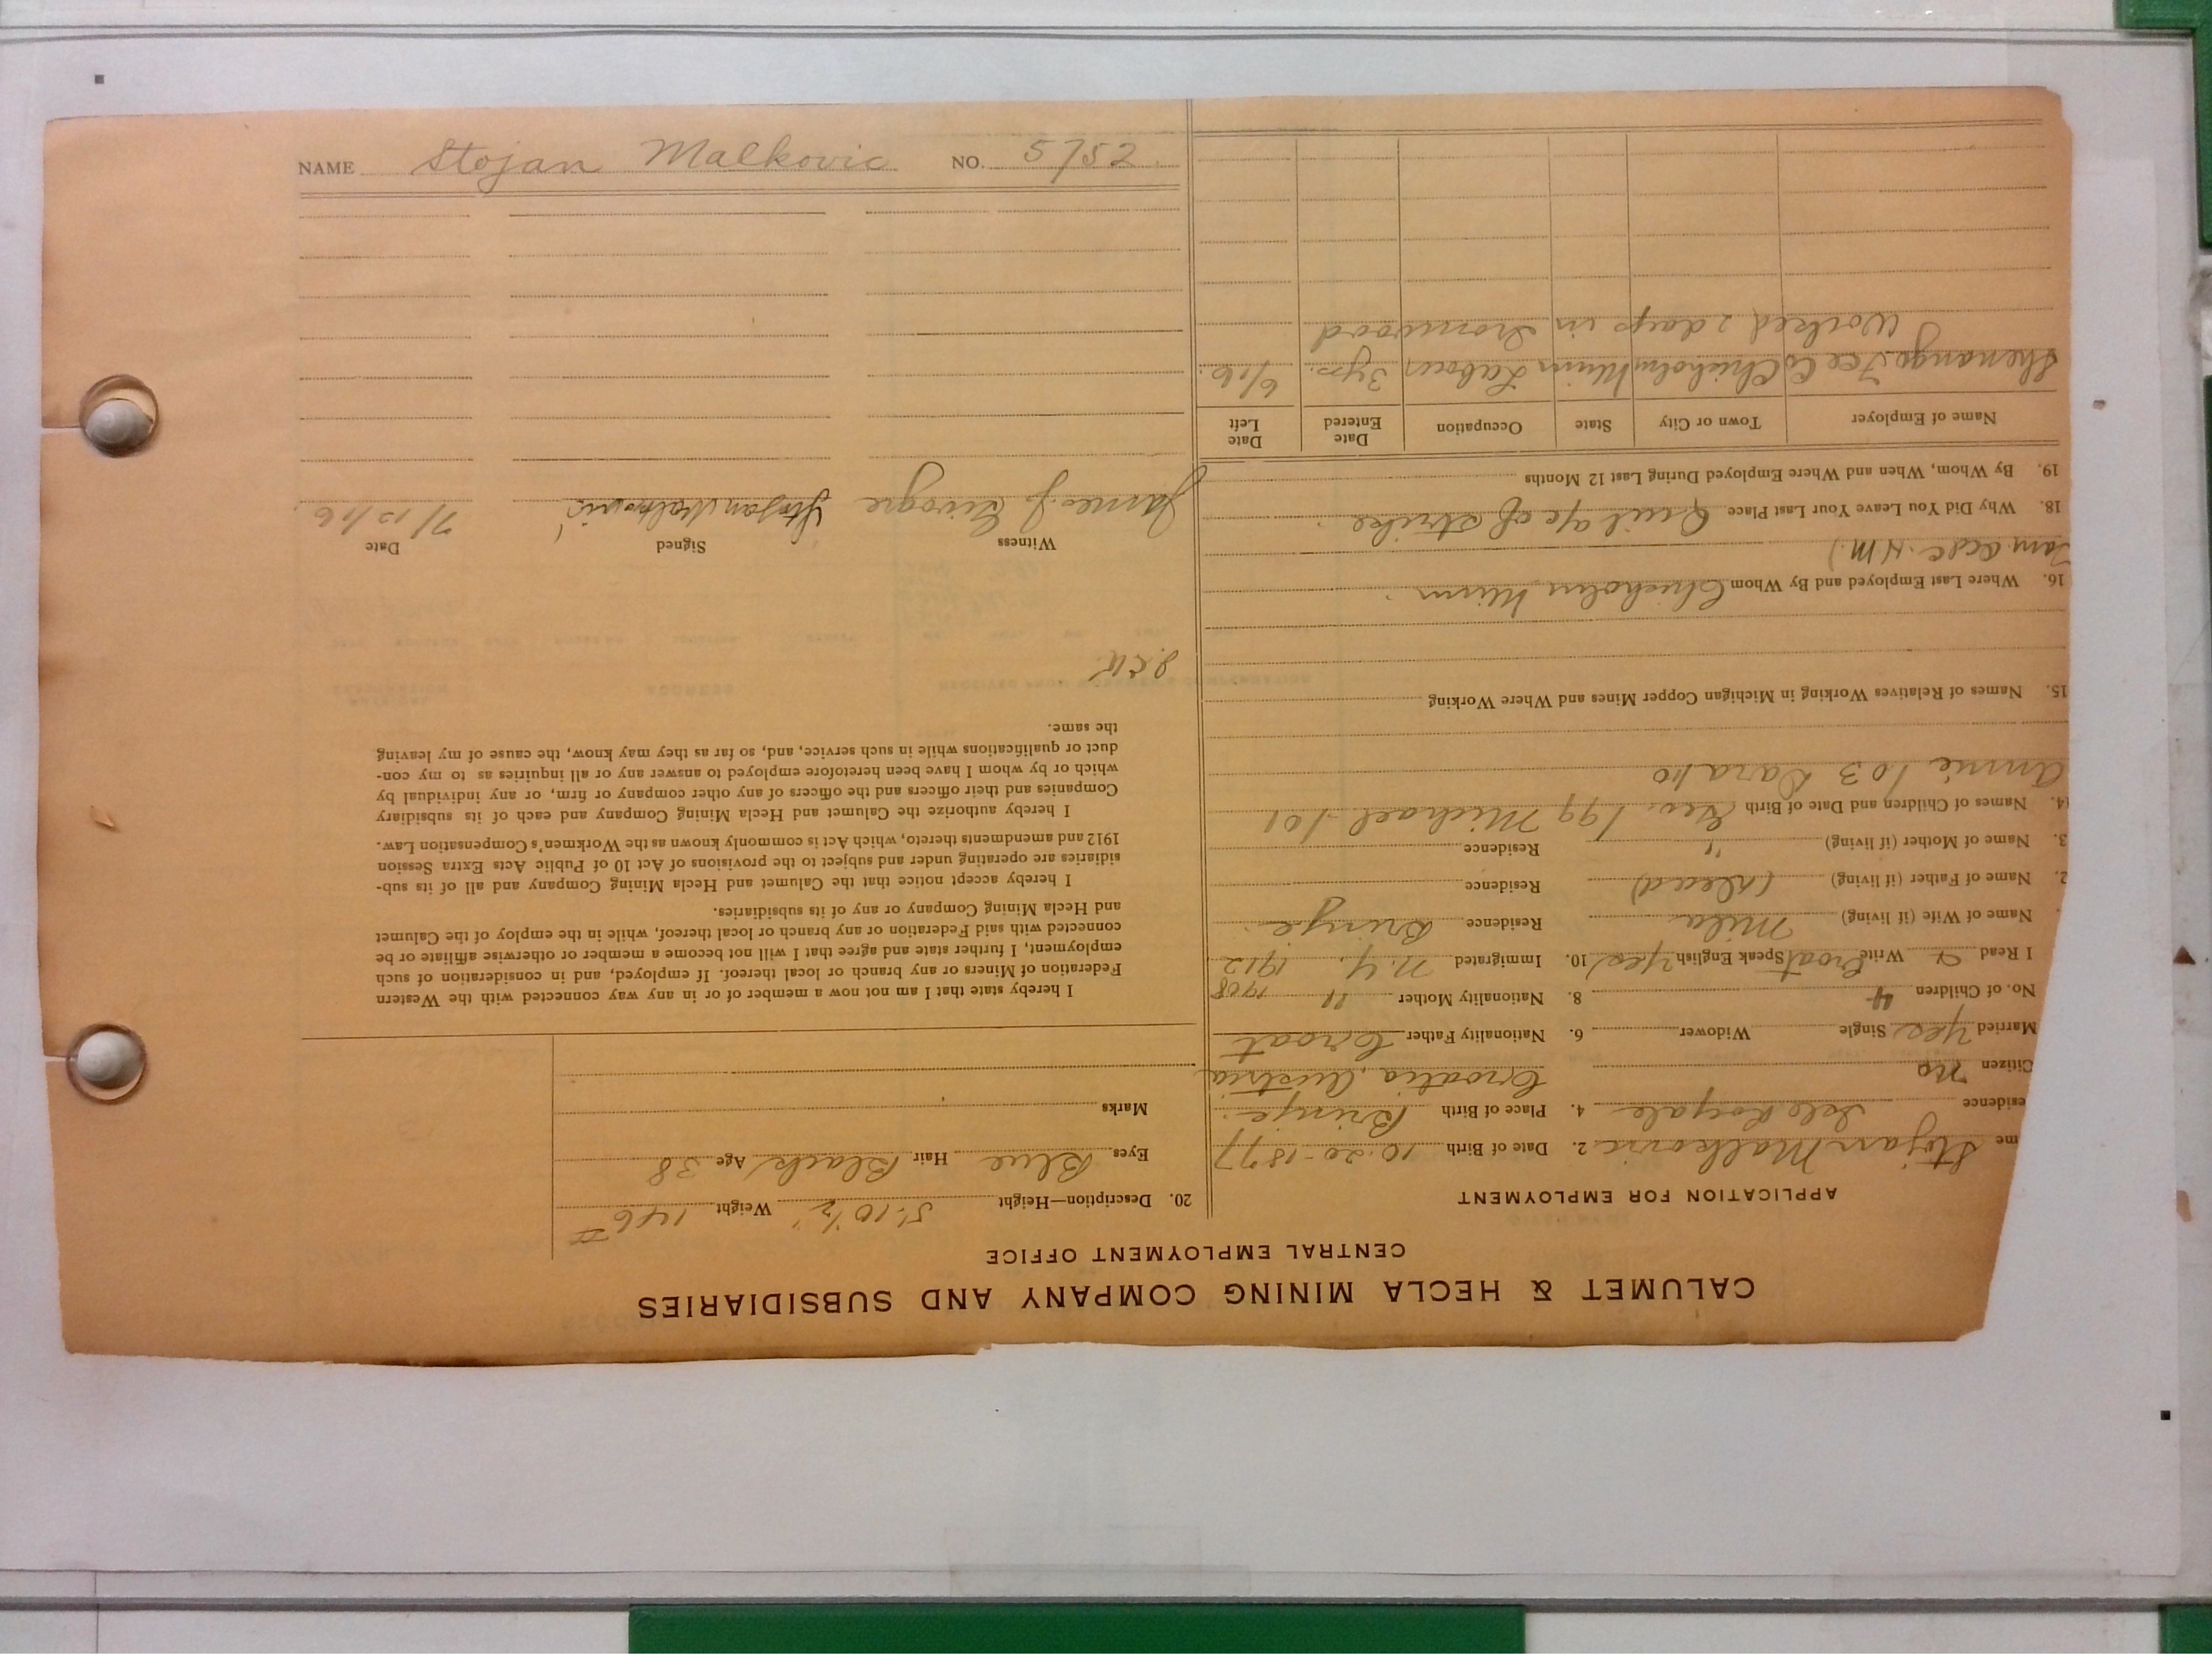 NAME Stojan Malkovic NO. 5752
CALUMET & HECLA MINING COMPANY AND SUBSIDIARIES
CENTRAL EMPLOYMENT OFFICE
APPLICATION FOR EMPLOYMENT
me Stojan Malkovic 2. Date of Birth 10-20-1877
esidence Isle Royale 4. Place of Birth Brinje
Croatia, Austria
Citizen No
Married Yes Single Widower 6. Nationality Father Croat
No. of Children 4 8. Nationality Mother " 1908
I Read & Write Croat Speak English Yes 10. Immigrated N.Y. 1912
Name of Wife (if living) Mila Residence Brinje
2. Name of Father (if living) (Dead) Residence
3. Name of Mother (if living) " Residence
4. Names of Children and Date of Birth Geo. 199 Michael-101
Annie 103 Dara 110
15. Names of Relatives Working in Michigan Copper Mines and Where Working
16. Where Last Employed and By Whom Chisholm Minn.
18. Why Did You Leave Your Last Place Quit a/c of strike.
19. By Whom, When and Where Employed During Last 12 Months
Name of Employer Town or City State Occupation Date Entered Date Left
Shenango Fce Co Chisholm Minn Labour 3 yrs. 6/16.
Worked 2 days in Ironwood
20. Description—Height 5'.10½" Weight 146 #
Eyes Blue Hair Black Age 38
Marks
I hereby state that I am not now a member of or in any way connected with the Western
Federation of Miners or any branch or local thereof. If employed, and in consideration of such
employment, I further state and agree that I will not become a member or otherwise affiliate or be
connected with said Federation or any branch or local thereof, while in the employ of the Calumet
and Hecla Mining Company or any of its subsidiaries.
I hereby accept notice that the Calumet and Hecla Mining Company and all of its sub-
sidiaries are operating under and subject to the provisions of Act 10 of Public Acts Extra Session
1912 and amendments thereto, which Act is commonly known as the Workmen's Compensation Law.
I hereby authorize the Calumet and Hecla Mining Company and each of its subsidiary
Companies and their officers and the officers of any other company or firm, or any individual by
which or by whom I have been heretofore employed to answer any or all inquiries as to my con-
duct or qualifications while in such service, and, so far as they may know, the cause of my leaving
the same.
Witness Signed Date
James J. Stojan Malkovic 7/15/16.